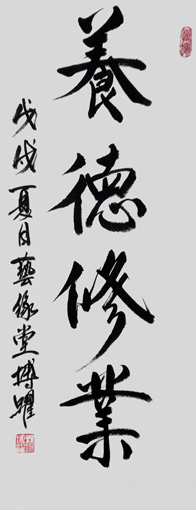 養德修業
戊戌夏日藝緣堂博躍